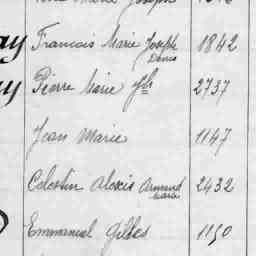 Marie Joseph
Francois Marie Joseph Denis 1842
Pierre Marie Jh 2737
Jean Marie 1147
Celestin Alexis Armand Marie 2432
Emmanuel Gilles 1190